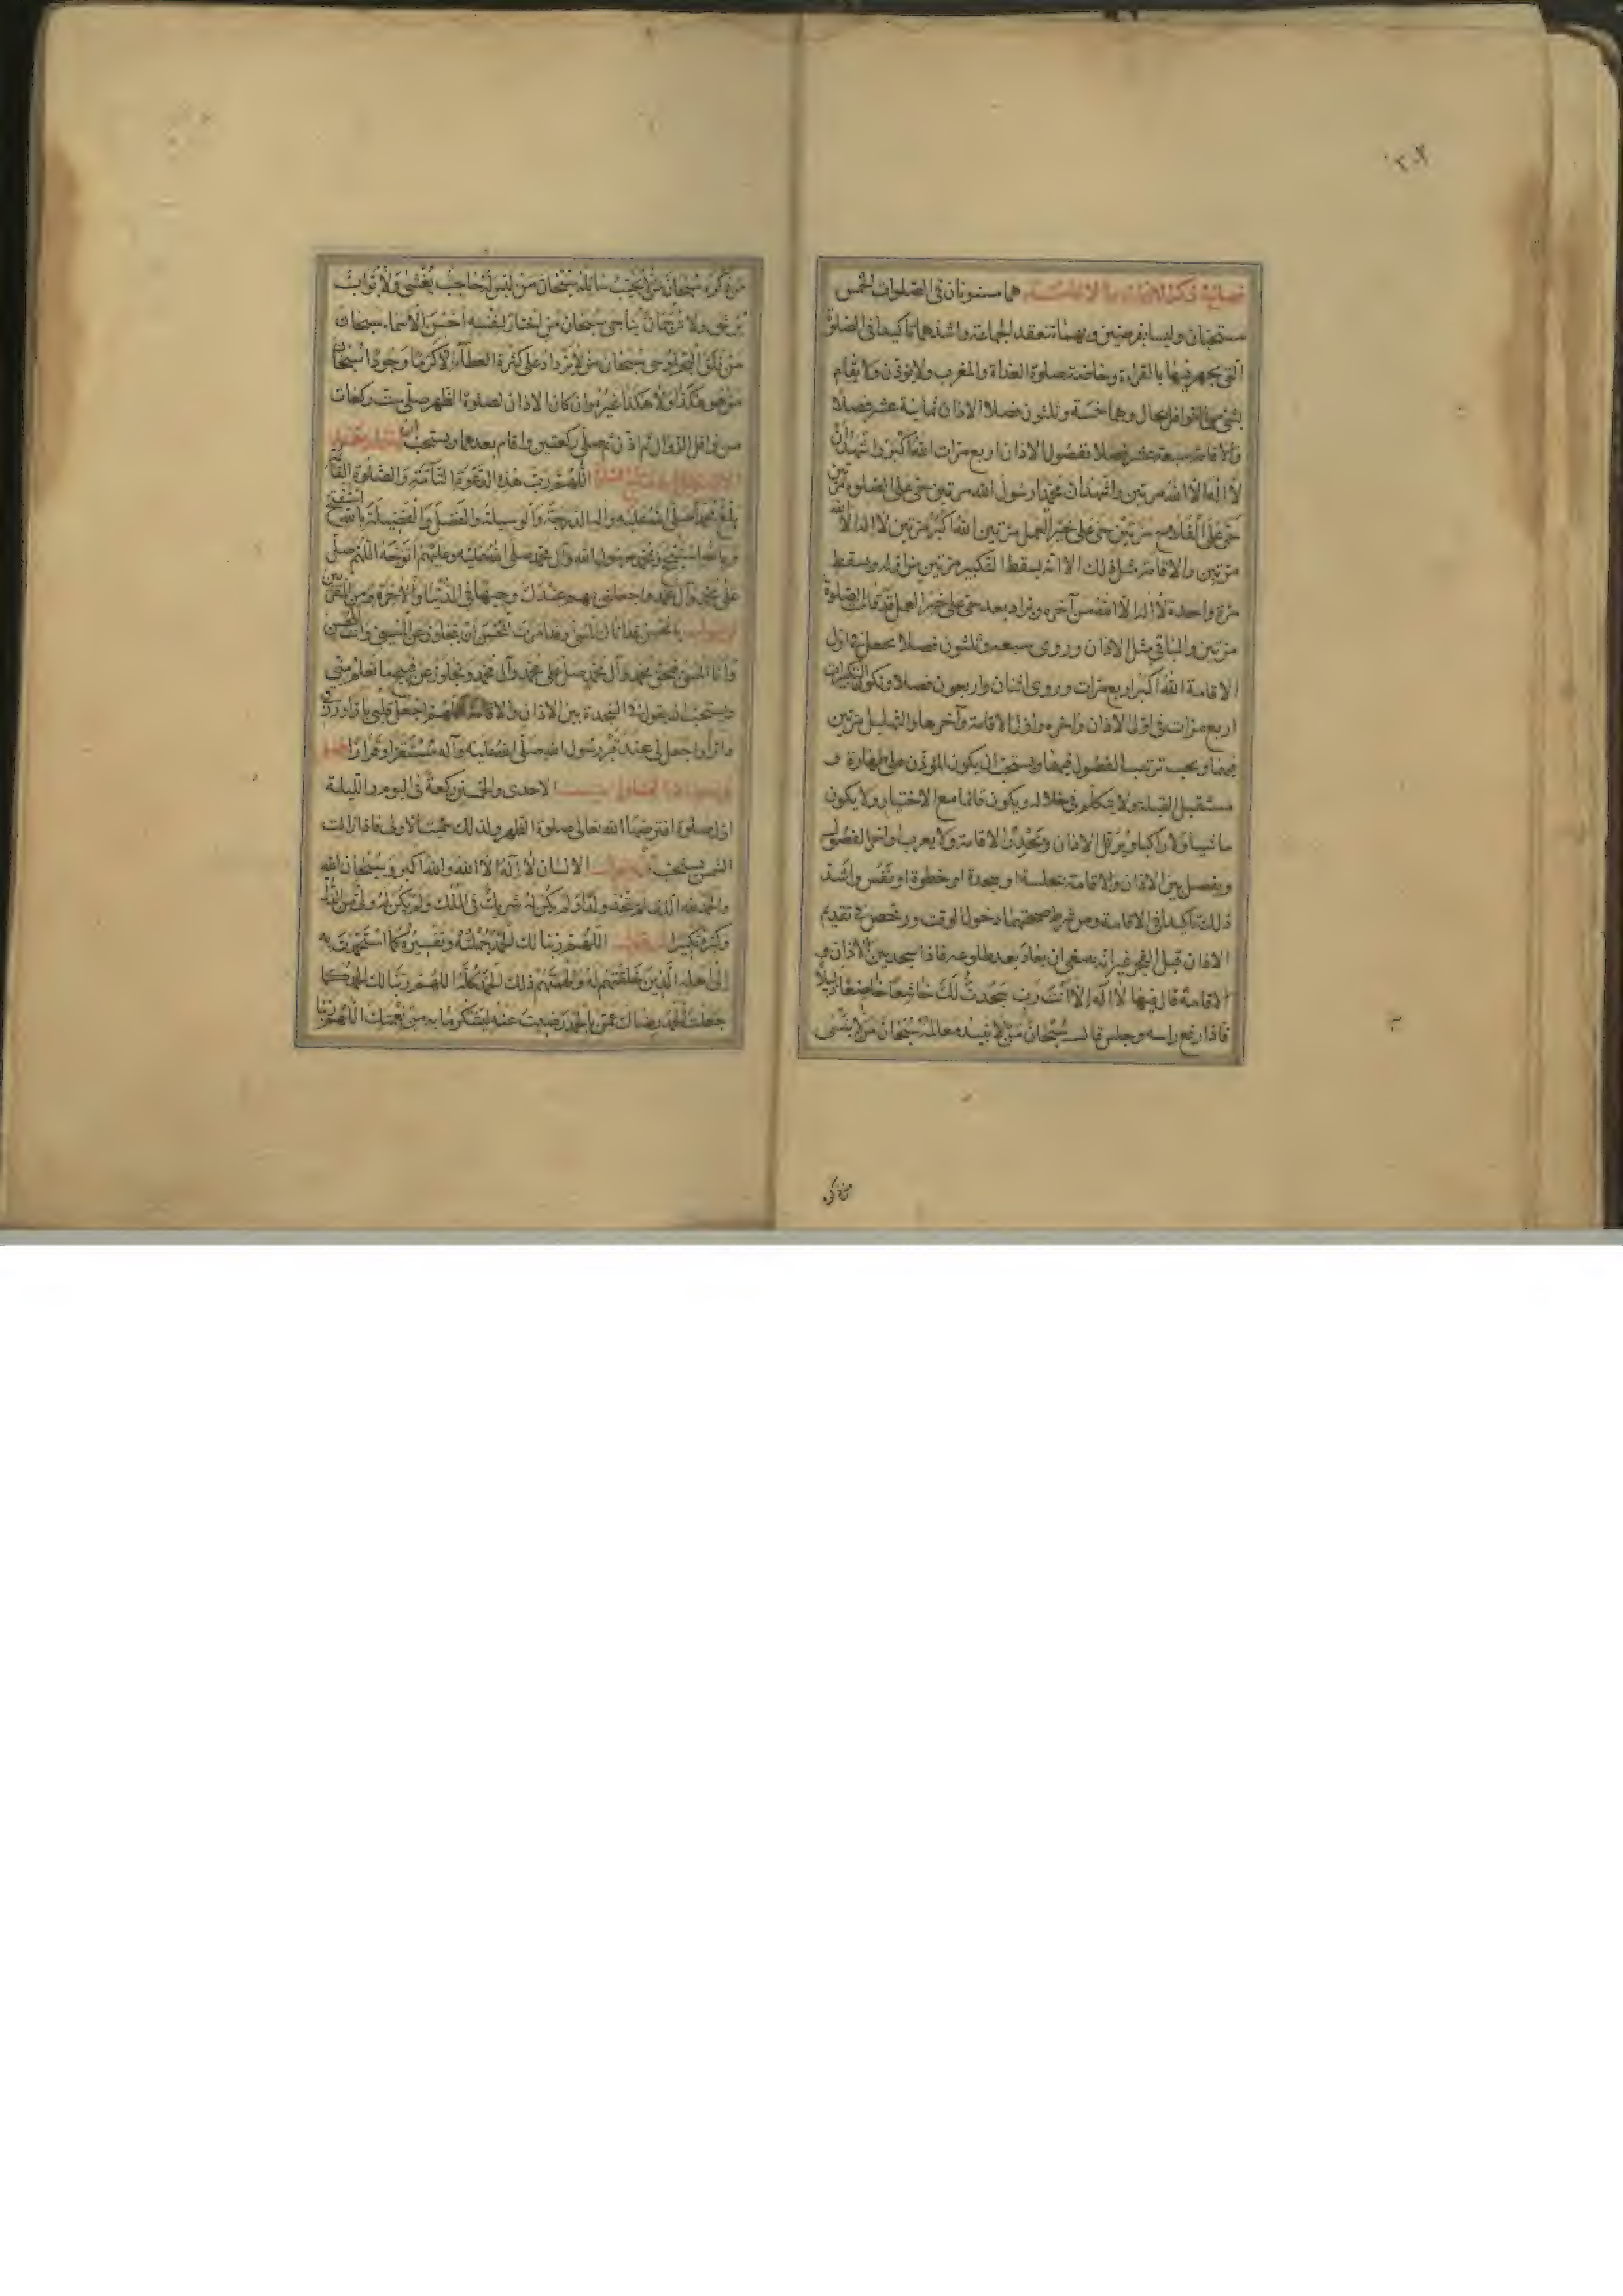 ٢٠٢
فصل في ذكر الاذان والاقامة هما مسنونان في الصلوات الخمس
مستحبتان وليسا بفرضين وبهما تنعقد الجماعة واشدهما تاكيدا في الصلوة
التي يجهر فيها بالقراءة وخاصة صلوة الغداة والمغرب ولا يؤذن ولا يقام
بشئ من النوافل بحال وهما خمسة وثلثون فصلا الاذان ثمانية عشر فصلا
والاقامة سبعة عشر فصلا ففصول الاذان اربع مرات اللّٰه اَكْبَر واَشْهَدُ اَنْ
لا اِلٰهَ اِلّا اللّٰه مرتين واشهد ان محمدا رسول الله مرتين حي على الصلوة مرتين
حي على الفلاح مرتين حي على خير العمل مرتين الله اكبر مرتين لا اله الا الله
مرتين والاقامة مثل ذلك الا انه يسقط التكبير مرتين من اوله ويسقط
مرة واحدة لا اله الا الله من آخره ويزاد بعد حي على خير العمل قد قامت الصلوة
مرتين والباقي مثل الاذان وروي سبعه وثلثون فصلا يجعل في اول
الاقامة الله اكبر اربع مرات وروى اثنان واربعون فصلا وتكون التكبيرات
اربع مرات في اول الاذان واخره واول الاقامة وآخرها والتهليل مرتين
فيهما ويجب ترتيب الفصول فيهما ويستحب ان يكون المؤذن على طهارة و
مستقبل القبلة ولا يتكلم في خلاله ويكون قائما مع الاختيار ولا يكون
ماشيا ولا راكبا ويرتل الاذان ويحدر الاقامة ولا يعرب اواخر الفصول
ويفصل بين الاذان والاقامة بجلسة او سجدة او خطوة او نفس واشد
ذلك تاكيدا في الاقامة ومن شرط صحتهما دخول الوقت ورخص في تقديم
الاذان قبل الفجر غير انه ينبغي ان يعاد بعد طلوعه فاذا سجد بين الاذان و
الاقامة قال فيها لا اله الا انت رب سجدت لك خاشعا خاضعا ذليلا
فاذا رفع راسه وجلس قال سبحان من لا تبيد معالمه سبحان من لا ينسى
من ذكره
من ذكره سبحان من لا يخيب سائله سبحان من ليس له حاجب يغشى ولا بواب
يرشى ولا ترجمان يناجى سبحان من اختار لنفسه احسن الاسماء سبحان
من فلق البحر لموسى سبحان من لا يزداد على كثرة العطاء الا كرما وجودا سبحان
من هو هكذا ولا هكذا غيره وان كان الاذان لصلوة الظهر صلى ست ركعات
من نوافل الزوال ثم اذن ثم صلى ركعتين واقام بعدهما ويستحب ان
اللهم رب هذه الدعوة التامة والصلوة القائمة
بلغ محمدا صلى الله عليه واله الدرجة والوسيلة والفضل والفضيلة بالله استفتح
وبالله استنجح وبمحمد رسول الله وآل محمد صلى الله عليه وعليهم اتوجه اللهم صل
على محمد وآل محمد واجعلني بهم عندك وجيها في الدنيا والاخرة ومن المقربين
يا محسن قد اتاك المسئ وقد امرت المحسن ان يتجاوز عن المسئ وانت المحسن
وانا المسئ فبحق محمد وآل محمد صل على محمد وآل محمد وتجاوز عن قبيح ما تعلم مني
ويستحب ان يقول في السجدة بين الاذان والاقامة اللهم اجعل قلبي بارا ورزقي
دارا واجعل لي عند قبر رسول الله صلى الله عليه وآله مستقرا وقرارا
الاحدى والخمسين ركعة في اليوم والليلة
اول صلوة افترضها الله تعالى صلوة الظهر ولذلك سميت الاولى فاذا زالت
الشمس يستحب ان يقول الانسان لا اله الا الله والله اكبر وسبحان الله
والحمد لله الذي لم يتخذ ولدا ولم يكن له شريك في الملك ولم يكن له ولي من الذل
وكبره تكبيرا اللهم ربنا لك الحمد جملته وتفسيره كما استحمدت به
الى اهله الذين خلقتهم له والهمتهم ذلك الحمد كله اللهم ربنا لك الحمد كما
جعلت الحمد رضاك عمن بالحمد رضيت عنه ليشكر ما به من نعمتك اللهم ربنا